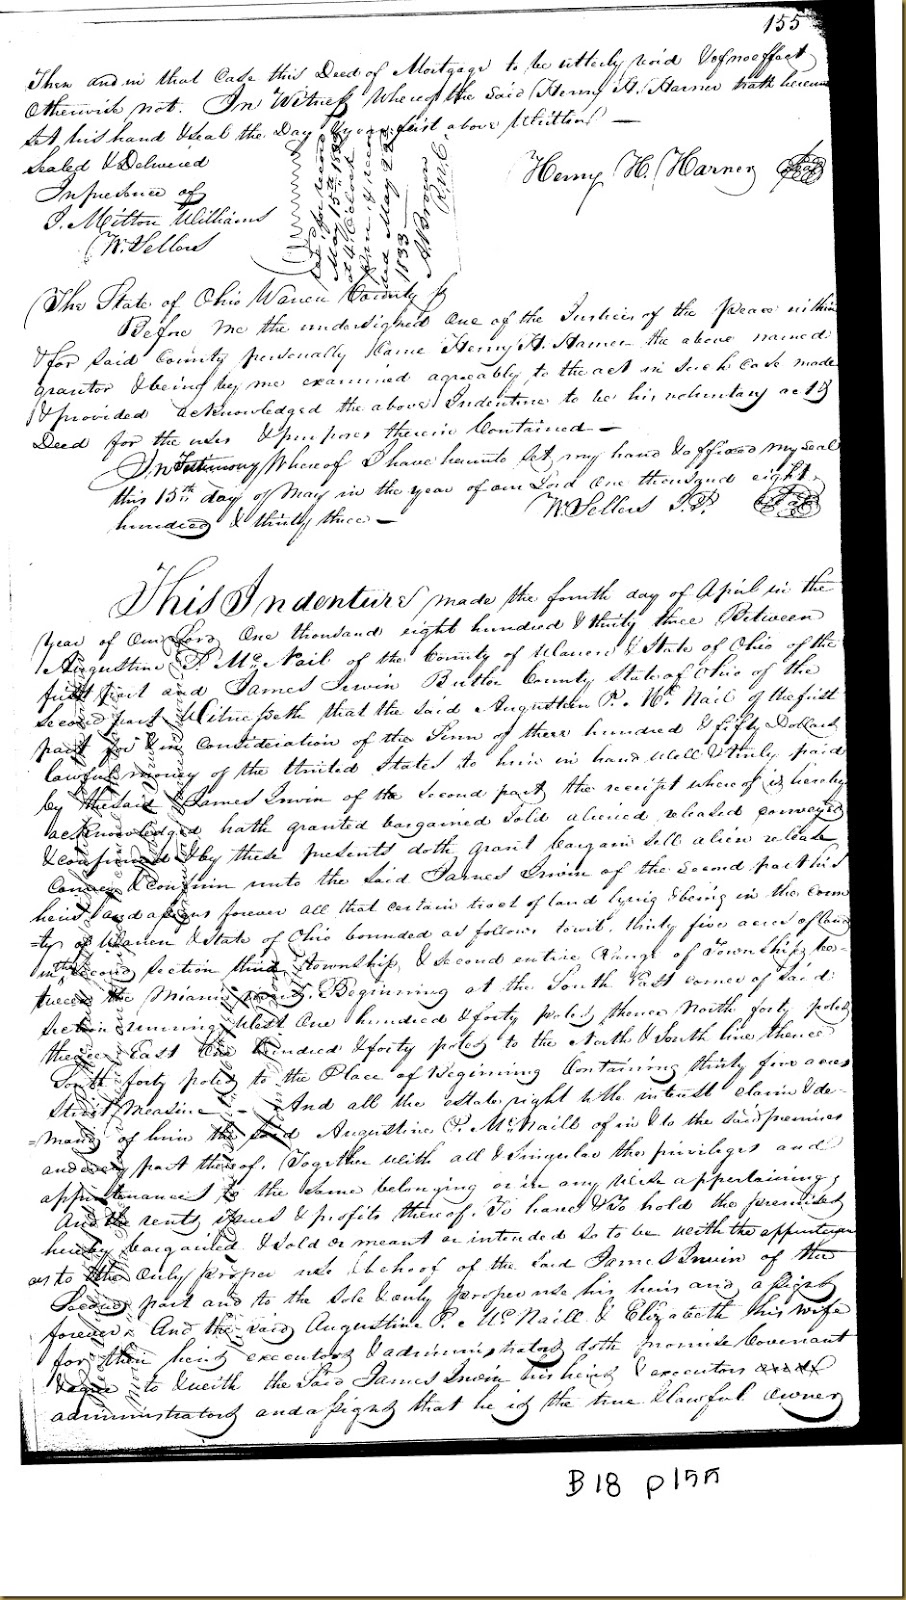 155
Then and in that Case this Deed of Mortgage to be utterly void & of no effect
Otherwise not. In Witness Whereof the said Henry H. Harner hath hereunto
Set his hand & seal the Day & year first above Written —
Sealed & Delivered
In presence of
J. Milton Williams
W. Sellers
Henry H. Harner Seal
May 15th
at 4 O'clock
May 22
1833
A. Brown
R. W. C.
The State of Ohio Warren County ss
Before me the undersigned One of the Justices of the Peace within
& for Said County personally Came Henry H. Harner the above named
grantor & being by me examined agreeably to the act in Such Case made
& provided acknowledged the above Indenture to be his voluntary act &
Deed for the uses & purposes therein Contained —
In Testimony Whereof I have hereunto Set my hand & affixed my seal
this 15th day of May in the year of our Lord One thousand eight
hundred & thirty three —
W. Sellers J.P. Seal
This Indenture made the fourth day of April in the
year of Our Lord One thousand eight hundred & thirty three Between
Augustine P. Mc Nail of the County of Warren & State of Ohio of the
first part and James Irwin Butler County State of Ohio of the
Second part Witnesseth that the said Augustine P. Mc Nail of the first
part for & in Consideration of the Sum of three hundred & fifty Dollars
lawful money of the United States to him in hand Well & truly paid
by the said James Irwin of the second part the receipt whereof is hereby
acknowledged hath granted bargained Sold aliened released conveyed
& confirmed & by these presents doth grant bargain sell alien release
Convey & Confirm unto the Said James Irwin of the second part his
heirs and assigns forever all that certain tract of land lying & being in the Coun
=ty of Warren & State of Ohio bounded as follows towit, thirty five acres of land
in the second Section third township, & second entire Range of Townships be=
tween the Miamis Beginning at the South East corner of Said
Section running West One hundred & forty poles, thence North forty poles
thence East One hundred & forty poles to the North & South line thence
South forty poles to the Place of Beginning Containing thirty five acres
Strict Measure — And all the estate right title interest claim & de-
=mand of him the Said Augustine P. McNaill of in & to the said premises
and every part thereof. Together With all & Singular the privileges and
appurtenances to the Same belonging or in any wise appertaining,
And the rents issues & profits thereof. To have & To hold the premises
hereby bargained & sold or meant or intended So to be with the appurtenan
to the Only proper use & behoof of the Said James Irwin of the
Second part and to the Sole & only proper use his heirs and assigns
forever. And the said Augustine P. Mc Naill & Elizabeth his wife
for their heirs executors & administrators doth promise Covenant
& agree to & with the Said James Irwin his heirs & executors
administrators and assigns that he is the true & lawful owner
B 18 p 155